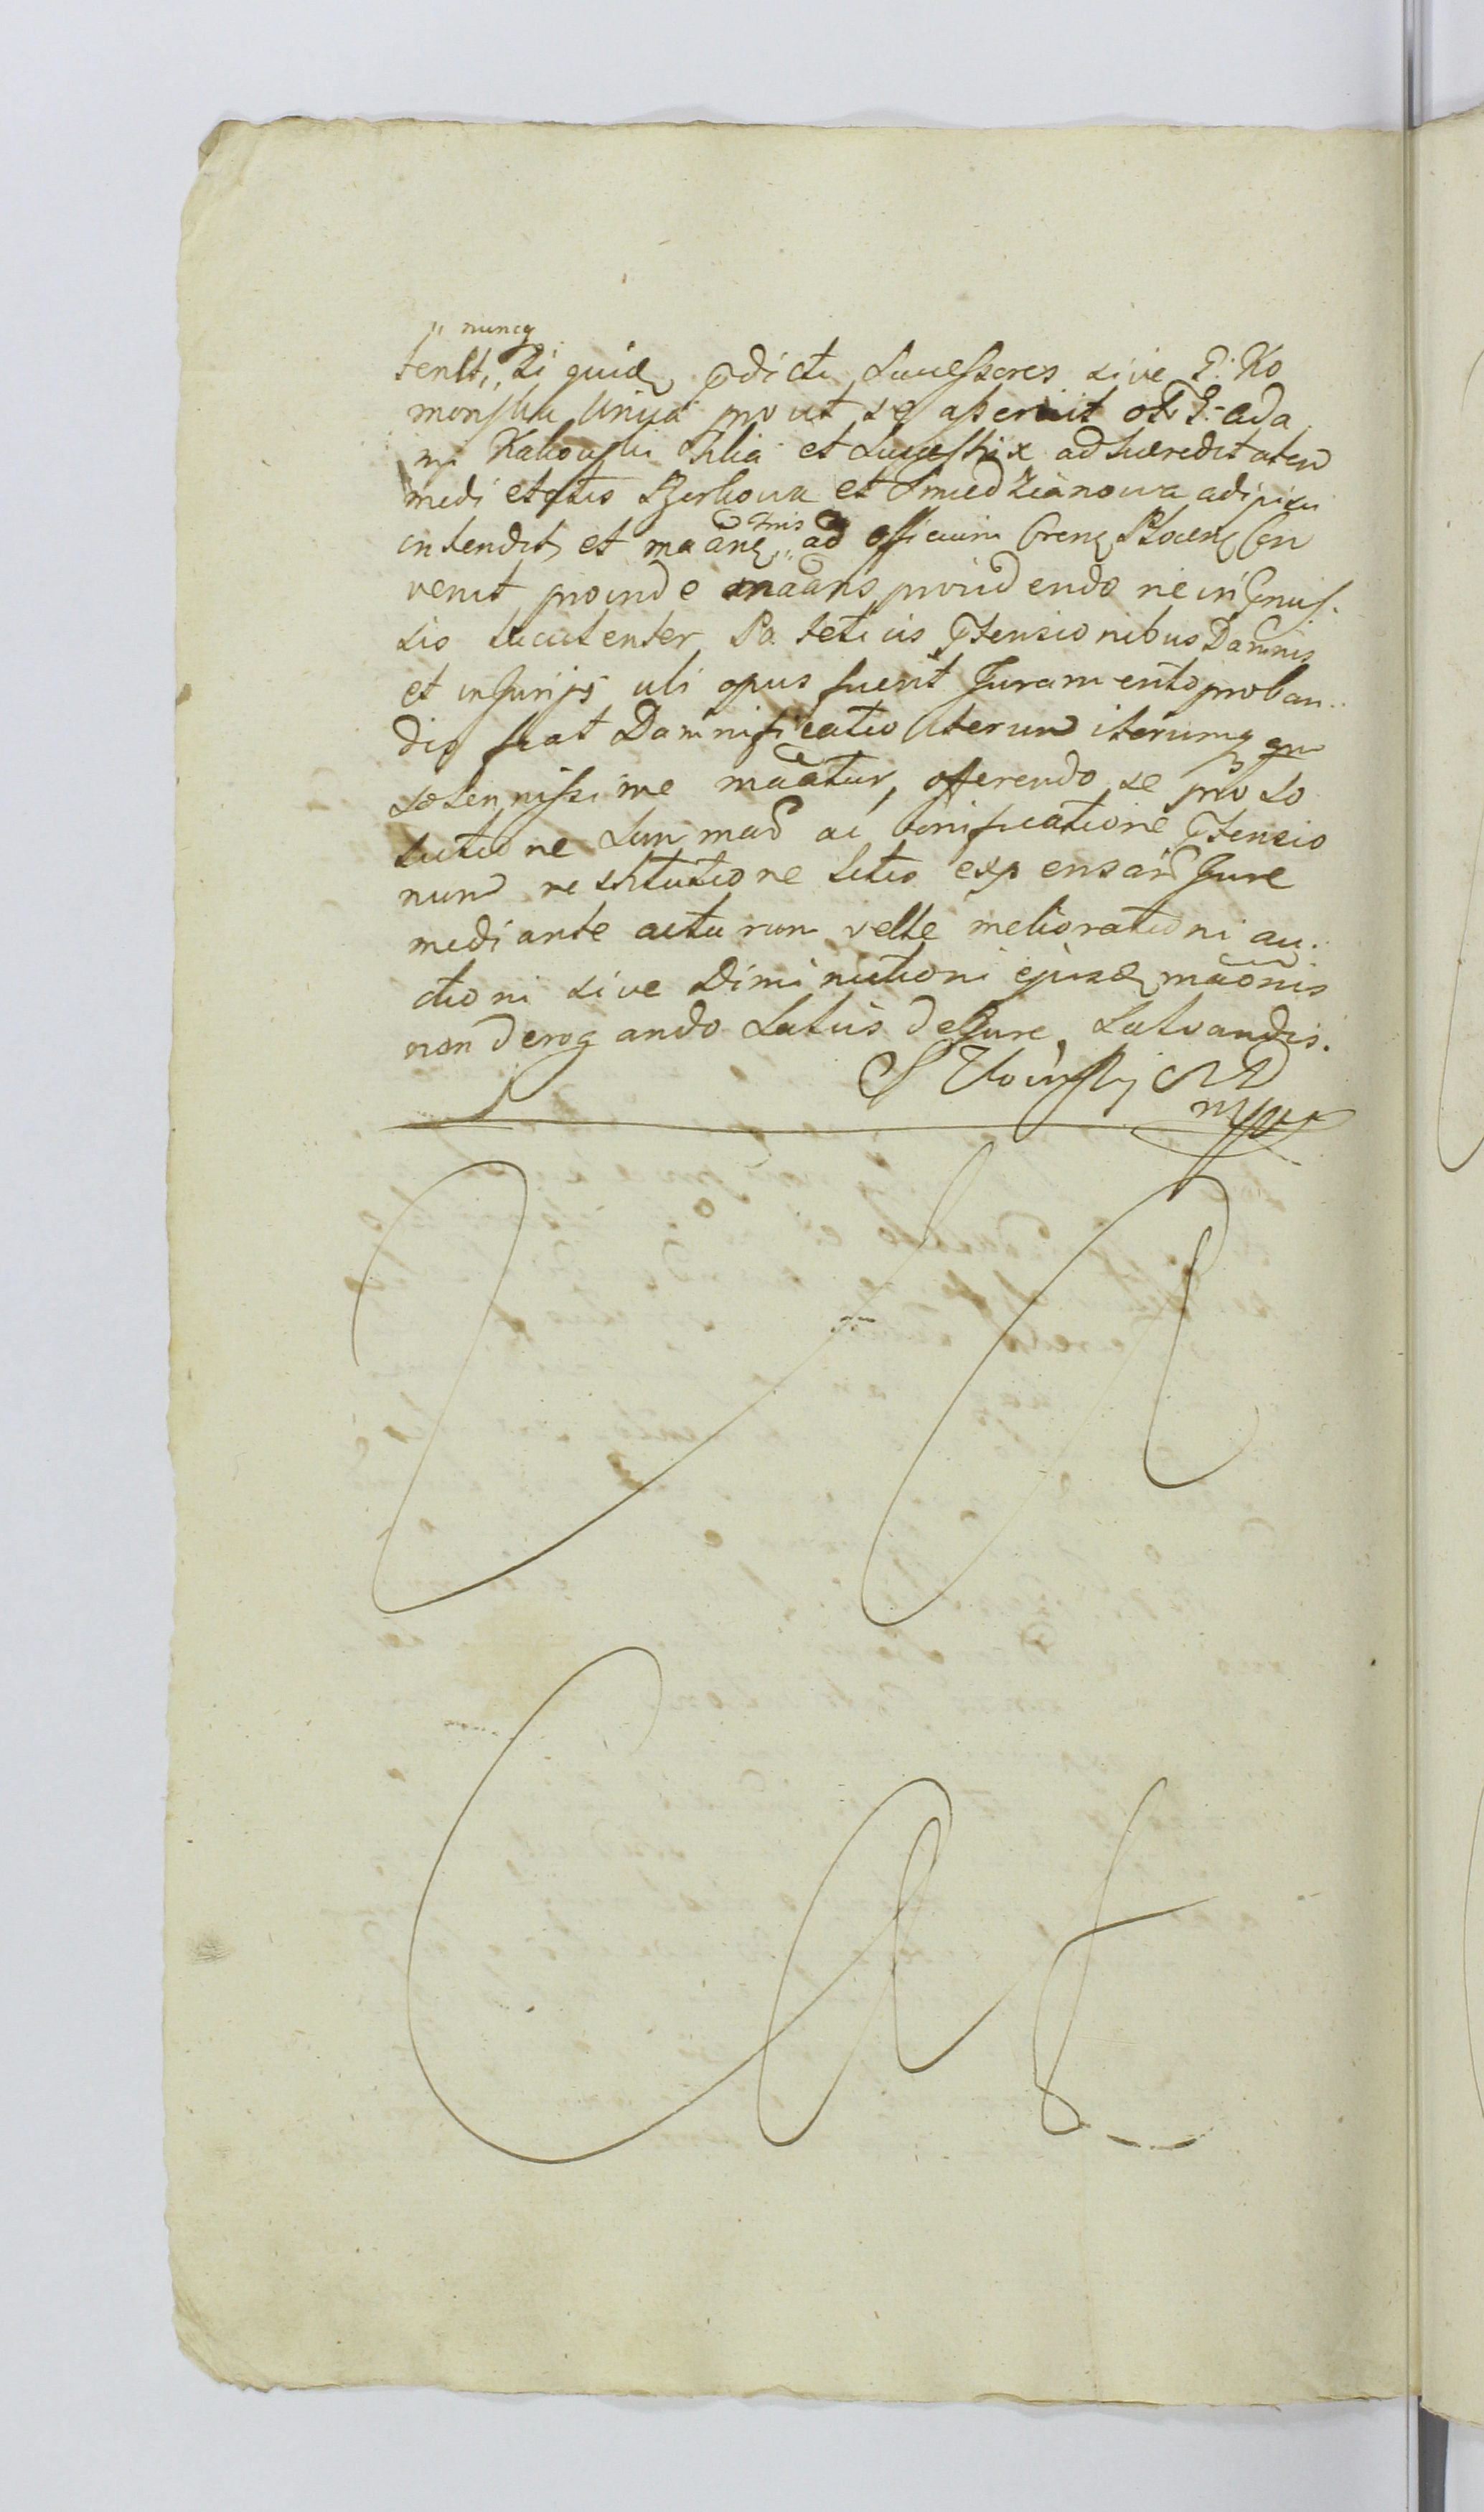 nuncq
tenlt, Si quidq pdicti Successores sive G: Ko
monska Unica prout se asseruit olt G: Ada
mi Kakowski Filia et Successtrix ad haereditatem
medietatis Bzerkowa et Smiedzianowa adipisci
intendit, et maanq, ad Officium Conq Plocenq Con
venit, proinde maans providendo ne in Pmis.
sis luculenter Patefetis Ptensionibus Damnis
et injurijs ubi opus fuerit Juramento proban..
dis fiat Damnificatio iterum iterumq qm
solennissime maatur, offerendo se pro so
lutione Summar ac bonificatione Ptensio
num restitutione litis expensar Jure
mediante acturum velle melioratione au.
ctioni sive Diminutioni ejusdq maonis
non derogando Salvis de Jure Salvandis.
mpp